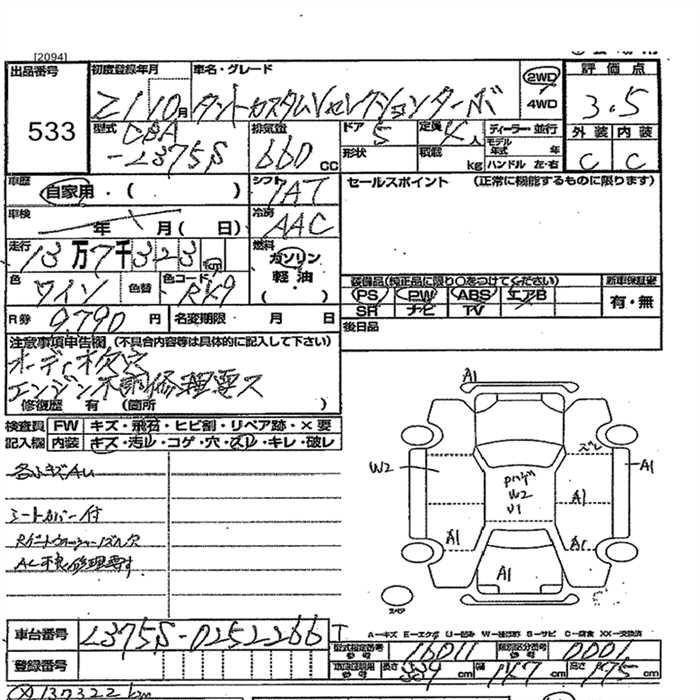 [2094]
出品番号
533
初度登録年月
21 10月
車名・グレード
タントカスタムVセレクションターボ
2WD
4WD
評価点
3.5
型式
DBA
-L375S
排気量
660
CC
ドア
5
形状
定員
4人
積載
kg
ディーラー・並行
モデル年式 年
ハンドル 左・右
外装 内装
C C
車歴
自家用・( )
シフト
7AT
セールスポイント (正常に機能するものに限ります)
車検
年 月( 日)
冷房
AAC
走行
13万7千323km
燃料
ガソリン
軽・油
( )
色
ワイン
色替
色コード
R49
装備品(純正品に限り○をつけてください)
新車保証書
PS PW ABS エアB
SR ナビ TV
有・無
R券
9,790円
名変期限 月 日
後日品
注意事項申告欄(不具合内容等は具体的に記入して下さい)
オーディオ欠品
エンジン不調修理要ス
修復歴 有 (箇所 )
検査員
記入欄
FW キズ・飛石・ヒビ割・リペア跡・×要
内装 キズ・汚レ・コゲ・穴・スレ・キレ・破レ
シートカバー付
AC不良修理要す
A1
W2
ズレ
A1
W2
U1
A1
A1
A1
スペア
車台番号
L375S-0252266
登録番号
A-キズ E-エクボ U-凹ミ W-補修跡 S-サビ C-腐食 XX-交換済
型式指定番号
参考
16011
類別区分番号
参考
0001
長さ 339cm 幅 147cm 高さ 175cm